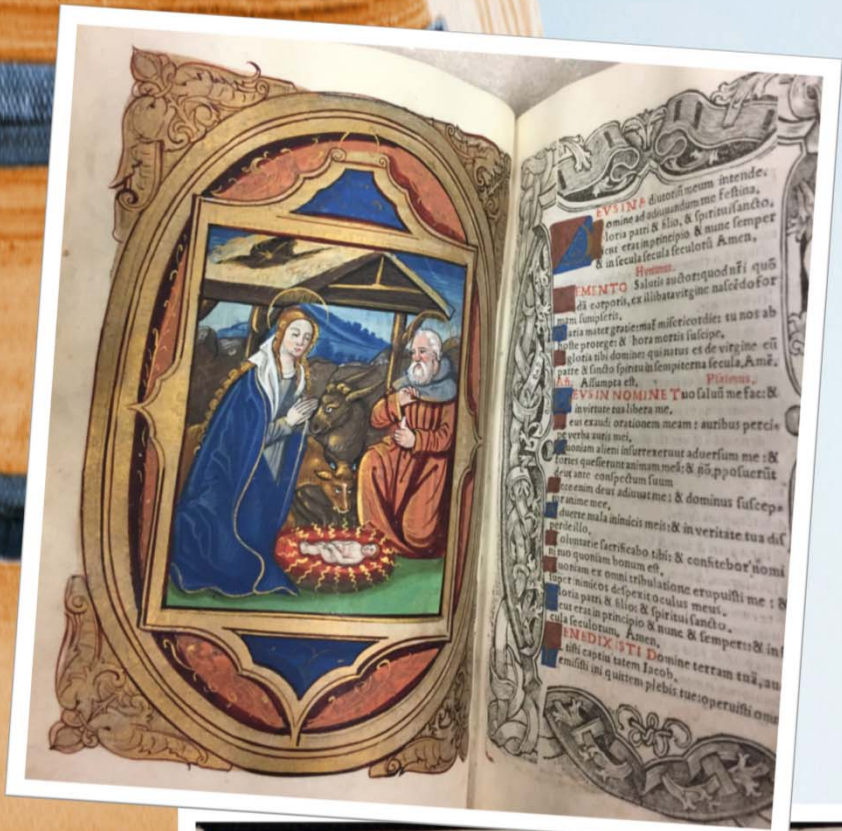 EVS IN A diutoriū meum intende.
omine ad adiuuandum me festina.
loria patri & filio, & spirituisancto.
icut erat in principio & nunc semper
& in secula secula seculorū Amen.
Hymnus.
EMENTO Salutis auctor: quod nr̄i quō
dā corporis, ex illibata virgine nascēdo for
mam sumpseris.
aria mater gratiermaſ misericordie: tu nos ab
hoste protege: & hora mortis suscipe.
gloria tibi domine: qui natus es de virgine cū
patre & sancto spiritu in sempiterna secula, Amē.
Assumpta est.
EVS IN NOMINE Tuo saluū me fac: &
in virtute tua libera me.
eus exaudi orationem meam: auribus perci=
pe verba auris mei.
uoniam alieni insurrexerunt aduersum me: &
fortes quesierunt animam meā: & nō pposuerūt
deus ante conspectum suum
cce enim deus adiuuat me: & dominus suscep=
tor anime mee.
duerte mala inimicis meis: & in veritate tua dis
perde illos.
oluntarie sacrificabo tibi: & confitebor nomi
ni tuo quoniam bonum est.
uoniam ex omni tribulatione eripuisti me: &
super inimicos despexit oculus meus.
loria patri & filio: & spiritui sancto.
cut erat in principio & nunc & semper: & in
cula seculorum, Amen.
ENEDIXISTI Domine terram tuā, au
tisti captiu tatem Iacob.
emisisti ini quitetem plebis tue: operuisti omn